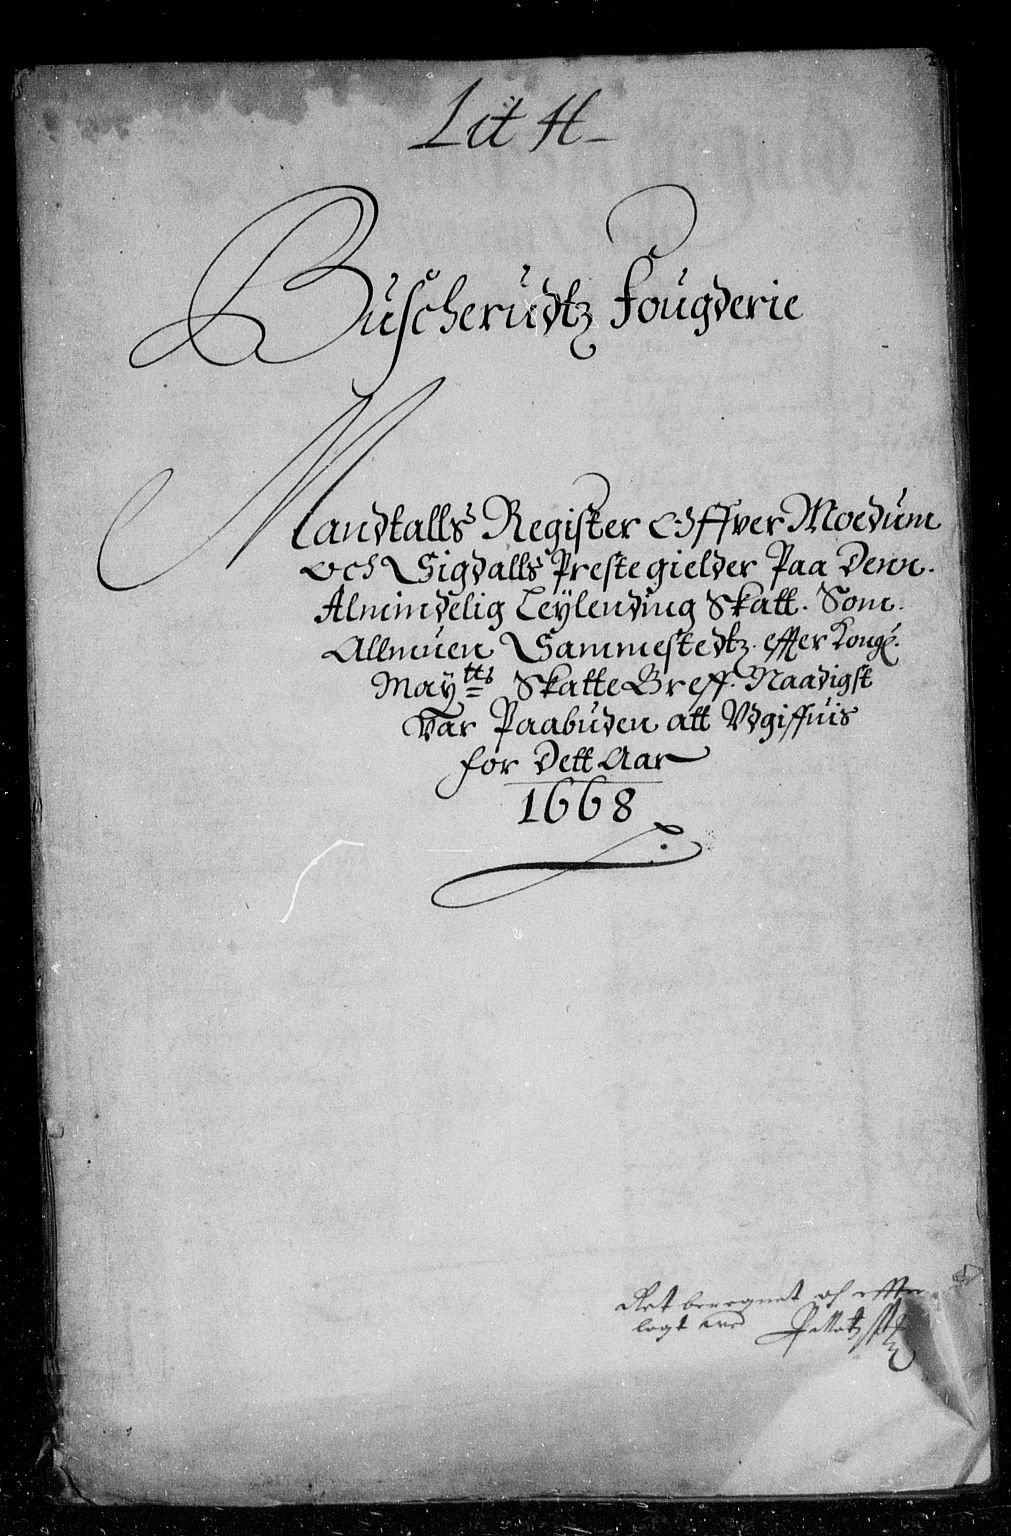 Lit H
Buscherudtz Fougderie
Mandtalls Register Offver Moedum
och Sigdalls Prestegielder Paa Denn
Almindelig Leylending Skatt. Som
Allmuen Sammestedtz effter Kongl.
Maytts Skatte Breff. Naadigst
Var Paabuden att Udgiffuis
for Dett Aar
1668
Ret beregnet och effter
lagt